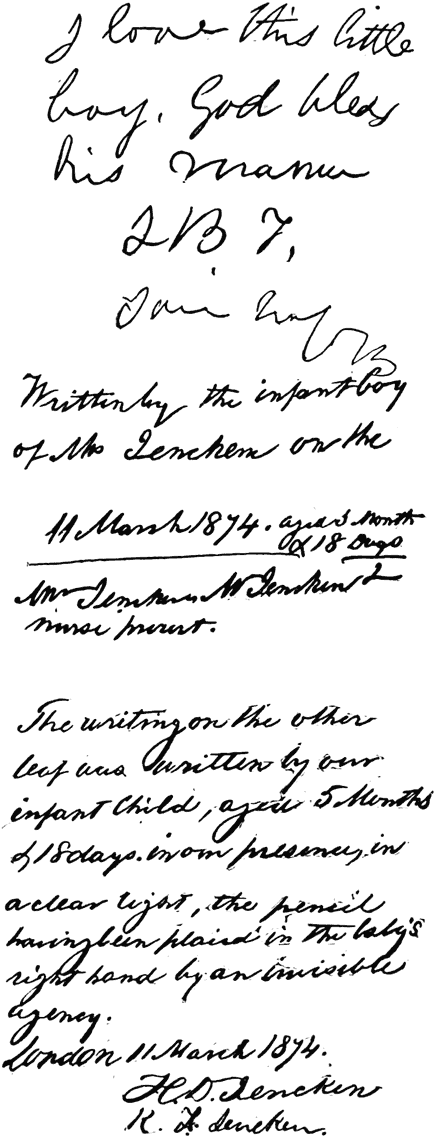 I love this little
boy. God bless
his mamma
I B T,
Written by the infant boy
of Mrs Jencken on the
11 March 1874. aged 5 Month
& 18 Days
Mrs Jencken Mr Jencken &
nurse present.
The writing on the other
leaf was written by our
infant Child, aged 5 Months
& 18 days. in our presence, in
a clear light, the pencil
having been placed in the baby's
right hand by an invisible
agency.
London 11 March 1874.
H. D. Jencken
K. F. Jencken.